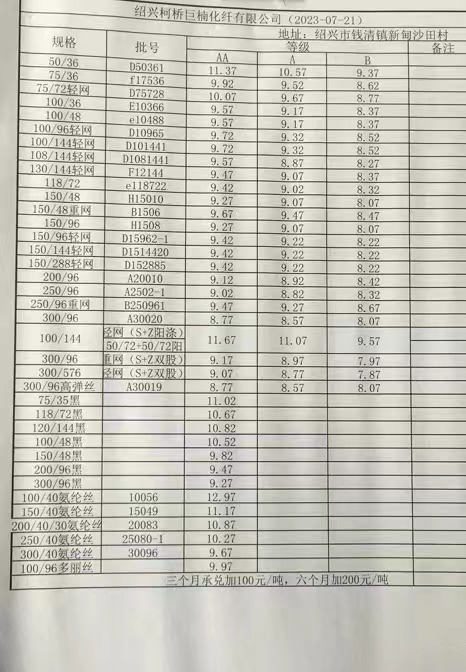 绍兴柯桥巨楠化纤有限公司（2023-07-21）
地址：绍兴市钱清镇新甸沙田村
规格 批号 等级 备注
AA A B
50/36 D50361 11.37 10.57 9.37
75/36 f17536 9.92 9.52 8.62
75/72轻网 D75728 10.07 9.67 8.77
100/36 E10366 9.57 9.17 8.37
100/48 e10488 9.57 9.17 8.37
100/96轻网 D10965 9.72 9.32 8.52
100/144轻网 D101441 9.72 9.32 8.52
108/144轻网 D1081441 9.57 8.87 8.27
130/144轻网 F12144 9.47 9.07 8.37
118/72 e118722 9.42 9.02 8.32
150/48 H15010 9.27 9.07 8.07
150/48重网 B1506 9.67 9.47 8.47
150/96 H1508 9.27 9.07 8.07
150/96轻网 D15962-1 9.42 9.22 8.22
150/144轻网 D1514420 9.42 9.22 8.22
150/288轻网 D152885 9.42 9.22 8.22
200/96 A20010 9.12 8.92 8.42
250/96 A2502-1 9.02 8.82 8.32
250/96重网 B250961 9.47 9.27 8.67
300/96 A30020 8.77 8.57 8.07
100/144 轻网（S+Z阳涤） 11.67 11.07 9.57
50/72+50/72阳
300/96 重网（S+Z双股） 9.17 8.97 7.97
300/576 轻网（S+Z双股） 9.07 8.77 7.87
300/96高弹丝 A30019 8.77 8.57 8.07
75/35黑 11.02
118/72黑 10.67
120/144黑 10.82
100/48黑 10.52
150/48黑 9.82
200/96黑 9.47
300/96黑 9.27
100/40氨纶丝 10056 12.97
150/40氨纶丝 15049 11.17
200/40/30氨纶丝 20083 10.87
250/40氨纶丝 25080-1 10.27
300/40氨纶丝 30096 9.67
100/96多丽丝 9.97
三个月承兑加100元/吨，六个月加200元/吨